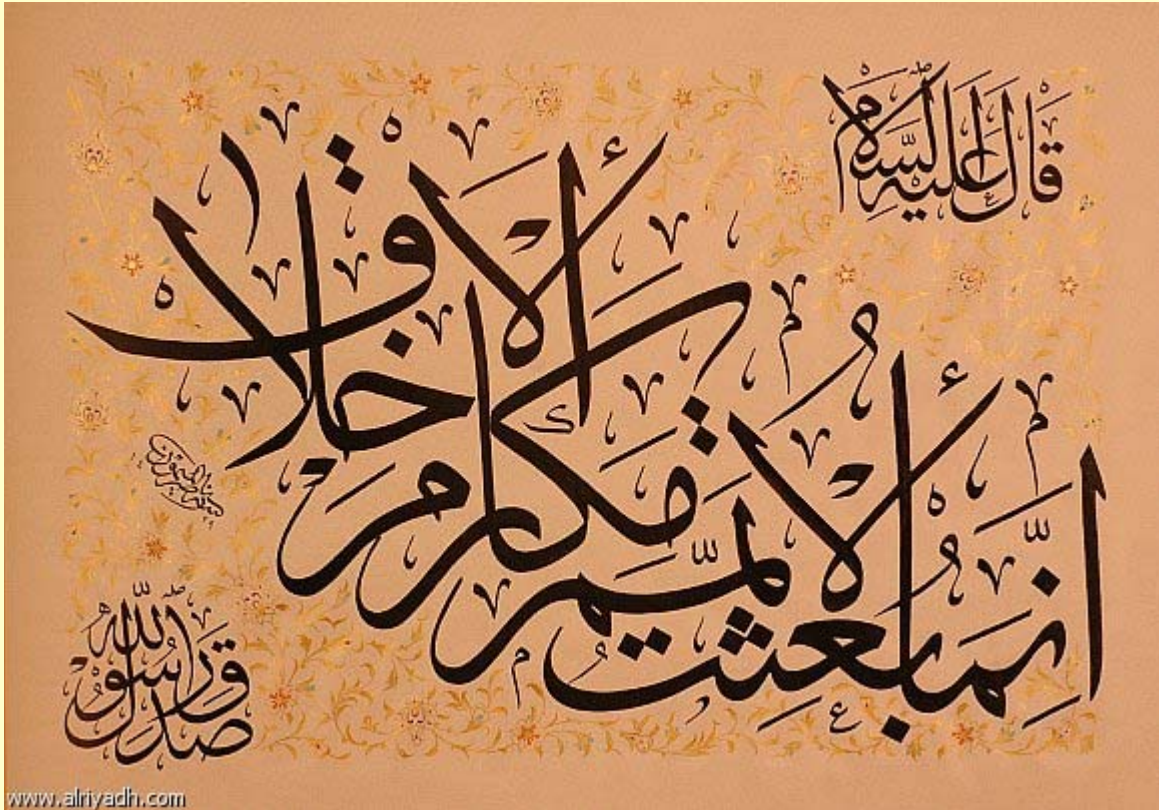 قَالَ عَلَيْهِ السَّلَامُ
اِنَّمَا بُعِثْتُ لِأُتَمِّمَ مَكَارِمَ الْأَخْلَاقِ
صَدَقَ رَسُولُ اللّٰه
www.alriyadh.com